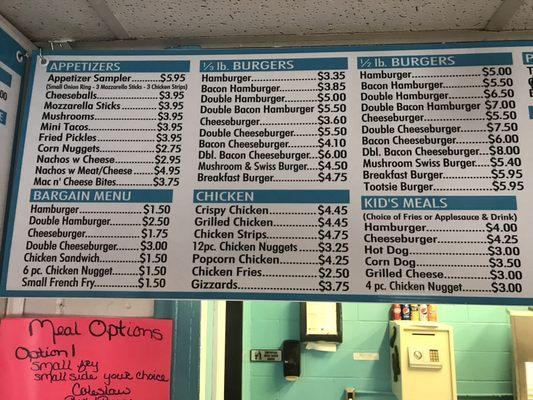 APPETIZERS
Appetizer Sampler $5.95
(Small Onion Ring - 3 Mozzarella Sticks - 3 Chicken Strips)
Cheeseballs $3.95
Mozzarella Sticks $3.95
Mushrooms $3.95
Mini Tacos $3.95
Fried Pickles $3.95
Corn Nuggets $2.75
Nachos w Cheese $2.95
Nachos w Meat/Cheese $4.95
Mac n' Cheese Bites $3.75
BARGAIN MENU
Hamburger $1.50
Double Hamburger $2.50
Cheeseburger $1.75
Double Cheeseburger $3.00
Chicken Sandwich $1.50
6 pc. Chicken Nugget $1.50
Small French Fry $1.50
⅓ lb. BURGERS
Hamburger $3.35
Bacon Hamburger $3.85
Double Hamburger $5.00
Double Bacon Hamburger $5.50
Cheeseburger $3.60
Double Cheeseburger $5.50
Bacon Cheeseburger $4.10
Dbl. Bacon Cheeseburger $6.00
Mushroom & Swiss Burger $4.50
Breakfast Burger $4.75
CHICKEN
Crispy Chicken $4.45
Grilled Chicken $4.45
Chicken Strips $4.75
12pc. Chicken Nuggets $3.25
Popcorn Chicken $4.25
Chicken Fries $2.50
Gizzards $3.75
½ lb. BURGERS
Hamburger $5.00
Bacon Hamburger $5.50
Double Hamburger $6.50
Double Bacon Hamburger $7.00
Cheeseburger $5.50
Double Cheeseburger $7.50
Bacon Cheeseburger $6.00
Dbl. Bacon Cheeseburger $8.00
Mushroom Swiss Burger $5.40
Breakfast Burger $5.95
Tootsie Burger $5.95
KID'S MEALS
(Choice of Fries or Applesauce & Drink)
Hamburger $4.00
Cheeseburger $4.25
Hot Dog $3.00
Corn Dog $3.50
Grilled Cheese $3.00
4 pc. Chicken Nugget $3.00
Meal Options
Option 1
small fry
small side your choice
Coleslaw